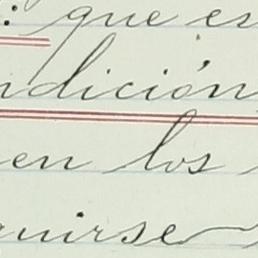 : que es
ndición
en los
uirse